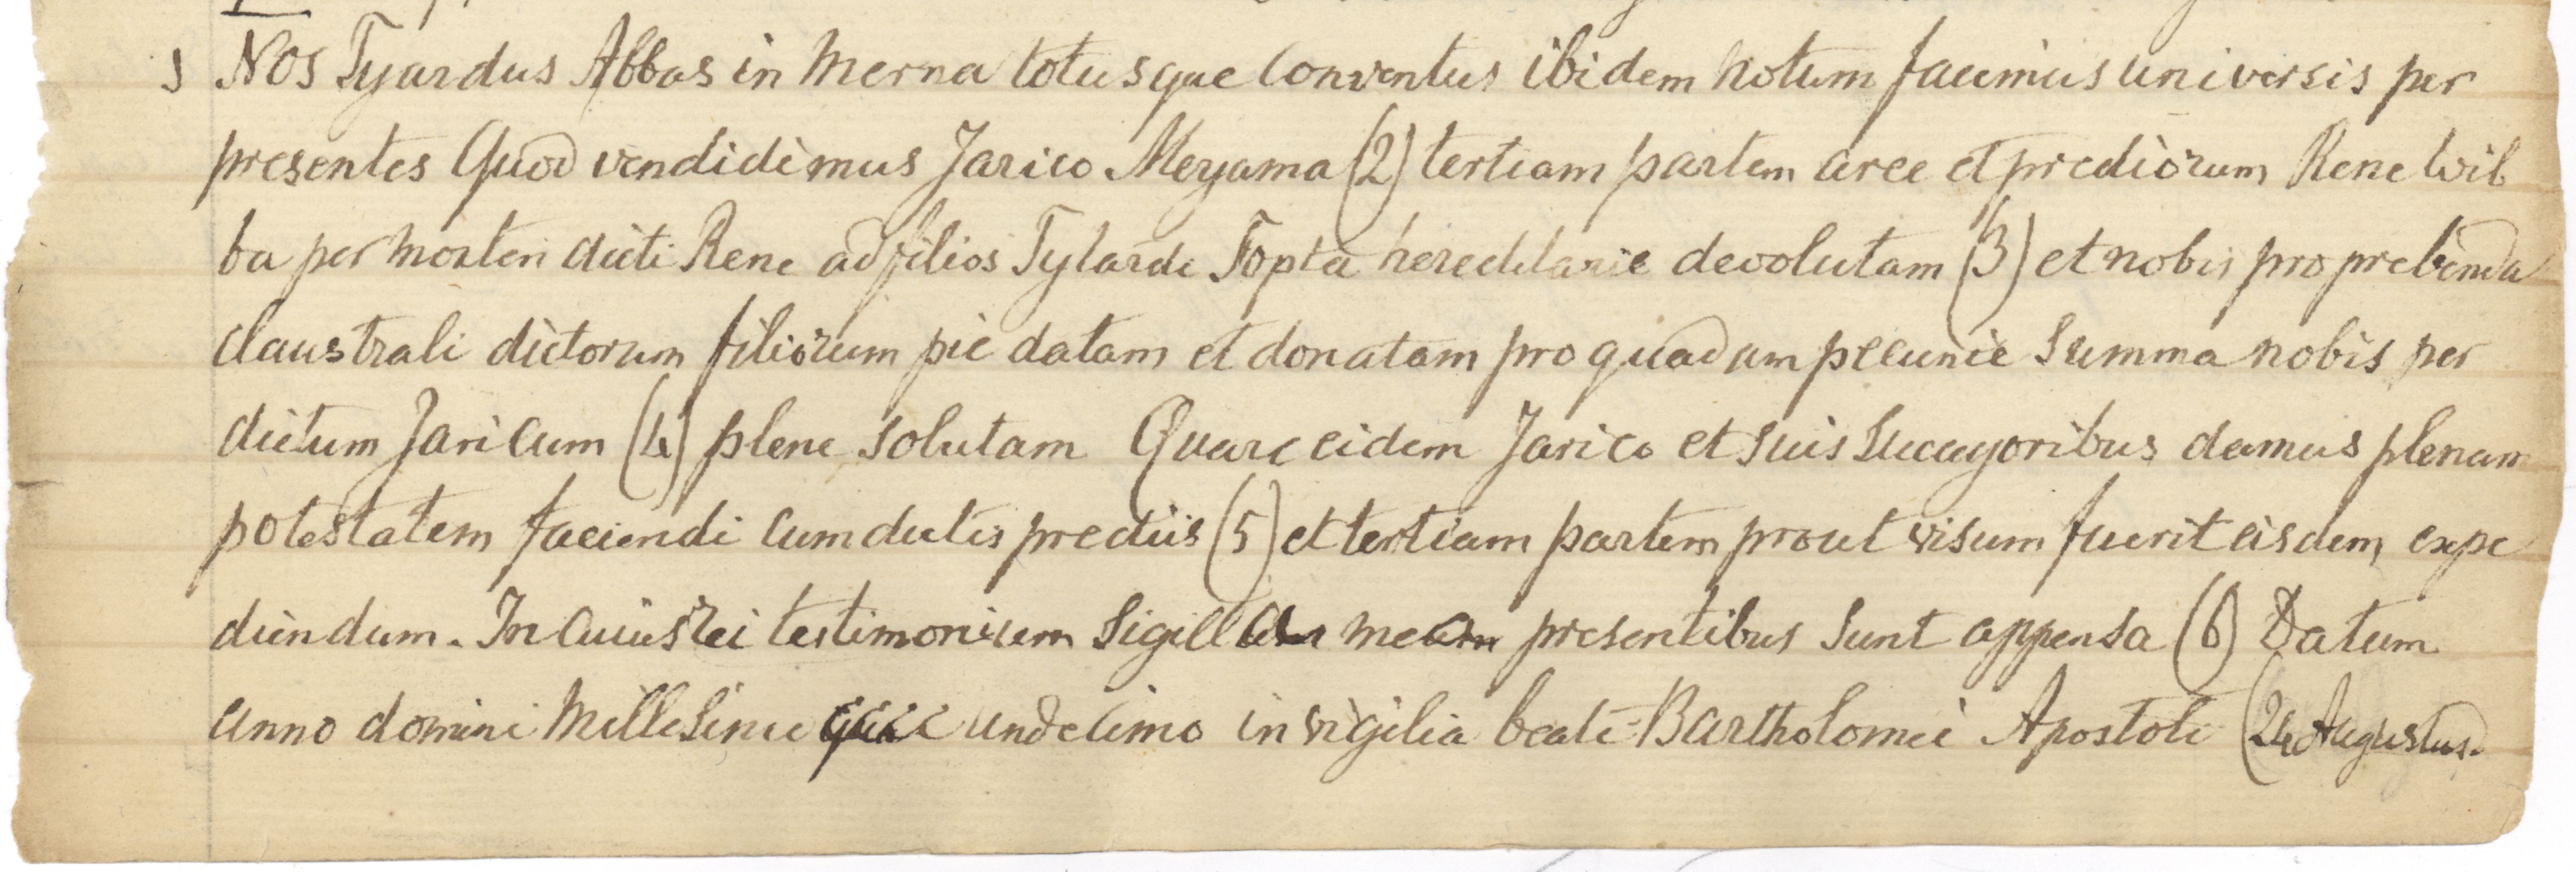 1 Nos Tyardus Abbas in Merna totusque Conventus ibidem notum facimus universis per
presentes Quod vendidimus Jarico Meyama (2) tertiam partem aree et prediorum Rene Wib
ba per mortem dicti Rene ad filios Tylardi Fopta hereditarie devolutam (3) et nobis pro prebenda
claustrali dictorum filiorum pie datam et donatam pro quadam pecunie summa nobis per
dictum Jaricum (4) plene solutam Quare eidem Jarico et suis Successoribus damus plenam
potestatem faciendi cum dictis prediis (5) et tertiam partem prout visum fuerit eisdem expe
diendum. In cuius rei testimonium Sigilla presentibus sunt appensa (6) Datum
anno domini Millesimo undecimo in vigilia beati Bartholomei Apostoli (24 Augustus.